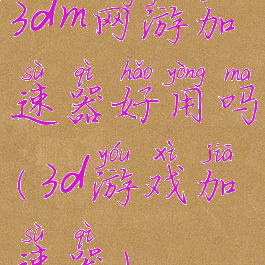 3dm网游加
sù qì hǎo yòng ma
速器好用吗
yóu xì jiā
(3d游戏加
sù qì
速器)